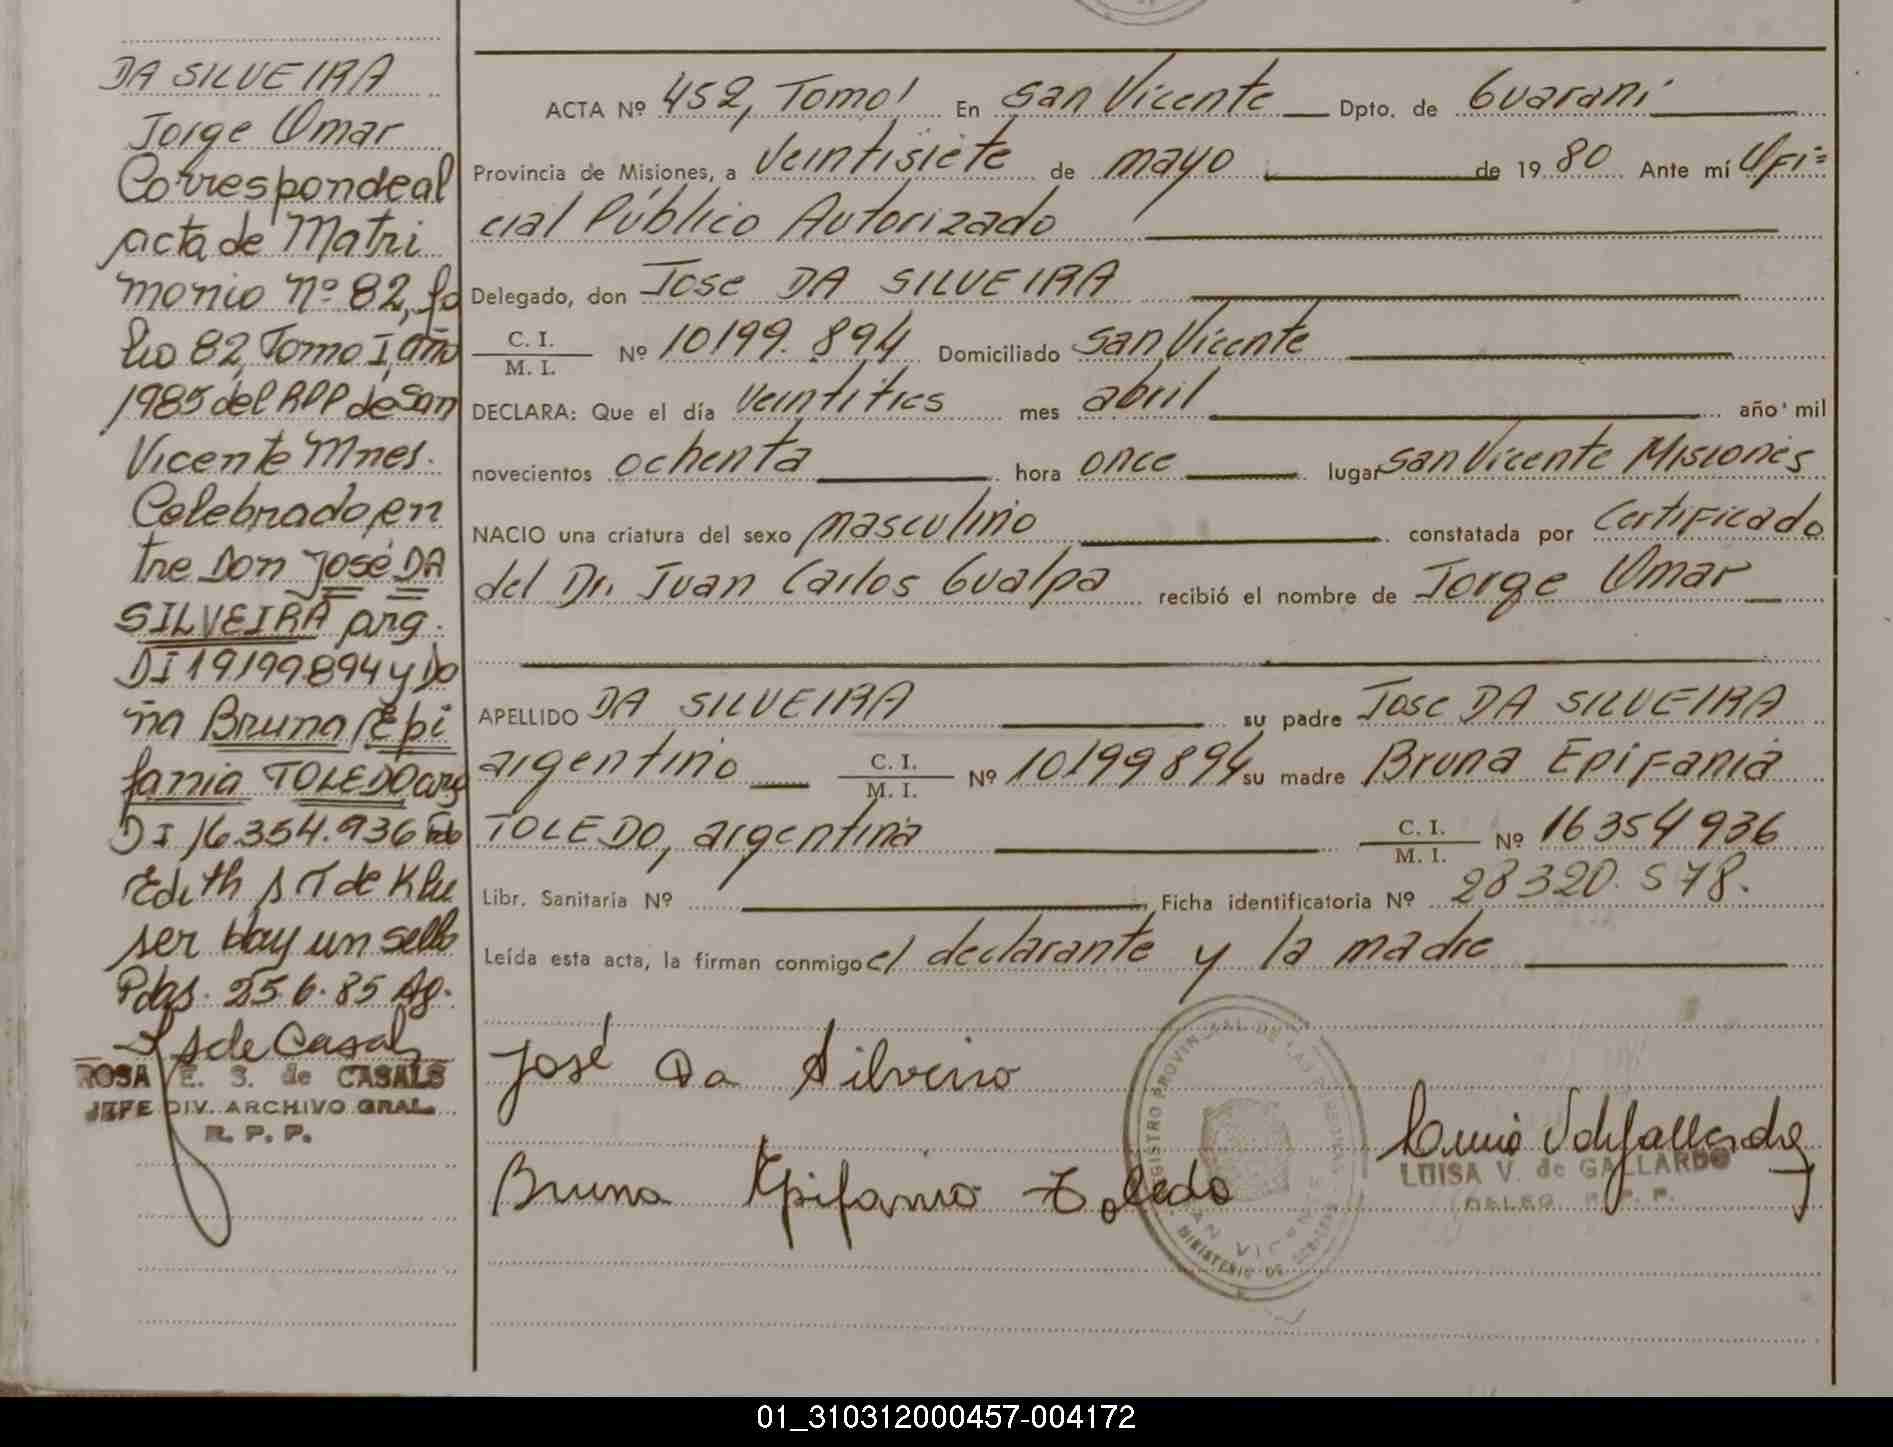 DA SILVEIRA
Jorge Omar
Corresponde al
acta de Matri
monio Nº 82, fo
lio 82, Tomo I, año
1985 del RPP de San
Vicente Mnes.
Celebrado en
tre Don José DA
SILVEIRA arg.
DI 19199894 y Do
ña Bruna Epi
fania TOLEDO arg
DI 16.354.936 Fdo
Edith S T de Klu
ser Hay un sello
Pdas. 25.6.85 Ag.
S de Casals
ROSA E. S. de CASALS
JEFE DIV. ARCHIVO GRAL.
R. P. P.
ACTA Nº 452, Tomo I En San Vicente Dpto. de Guaraní
Provincia de Misiones, a Veintisiete de mayo de 19 80 Ante mí Ofi=
cial Público Autorizado
Delegado, don Jose DA SILVEIRA
C. I. / M. I. Nº 10199.894 Domiciliado San Vicente
DECLARA: Que el día Veintitres mes abril año mil
novecientos ochenta hora once lugar San Vicente Misiones
NACIO una criatura del sexo masculino constatada por Certificado
del Dr. Juan Carlos Gualpa recibió el nombre de Jorge Omar
APELLIDO DA SILVEIRA su padre Jose DA SILVEIRA
argentino C. I. / M. I. Nº 10199894 su madre Bruna Epifania
TOLEDO, argentina C. I. / M. I. Nº 16354936
Libr. Sanitaria Nº Ficha identificatoria Nº 28320.578.
Leída esta acta, la firman conmigo el declarante y la madre
José Da Silveira
Bruna Epifania Toledo
REGISTRO PROVINCIAL DE LAS PERSONAS
SAN VICENTE
MINISTERIO DE GOBIERNO
LUISA V. de GALLARDO
DELEG. R. P. P.
01_310312000457-004172